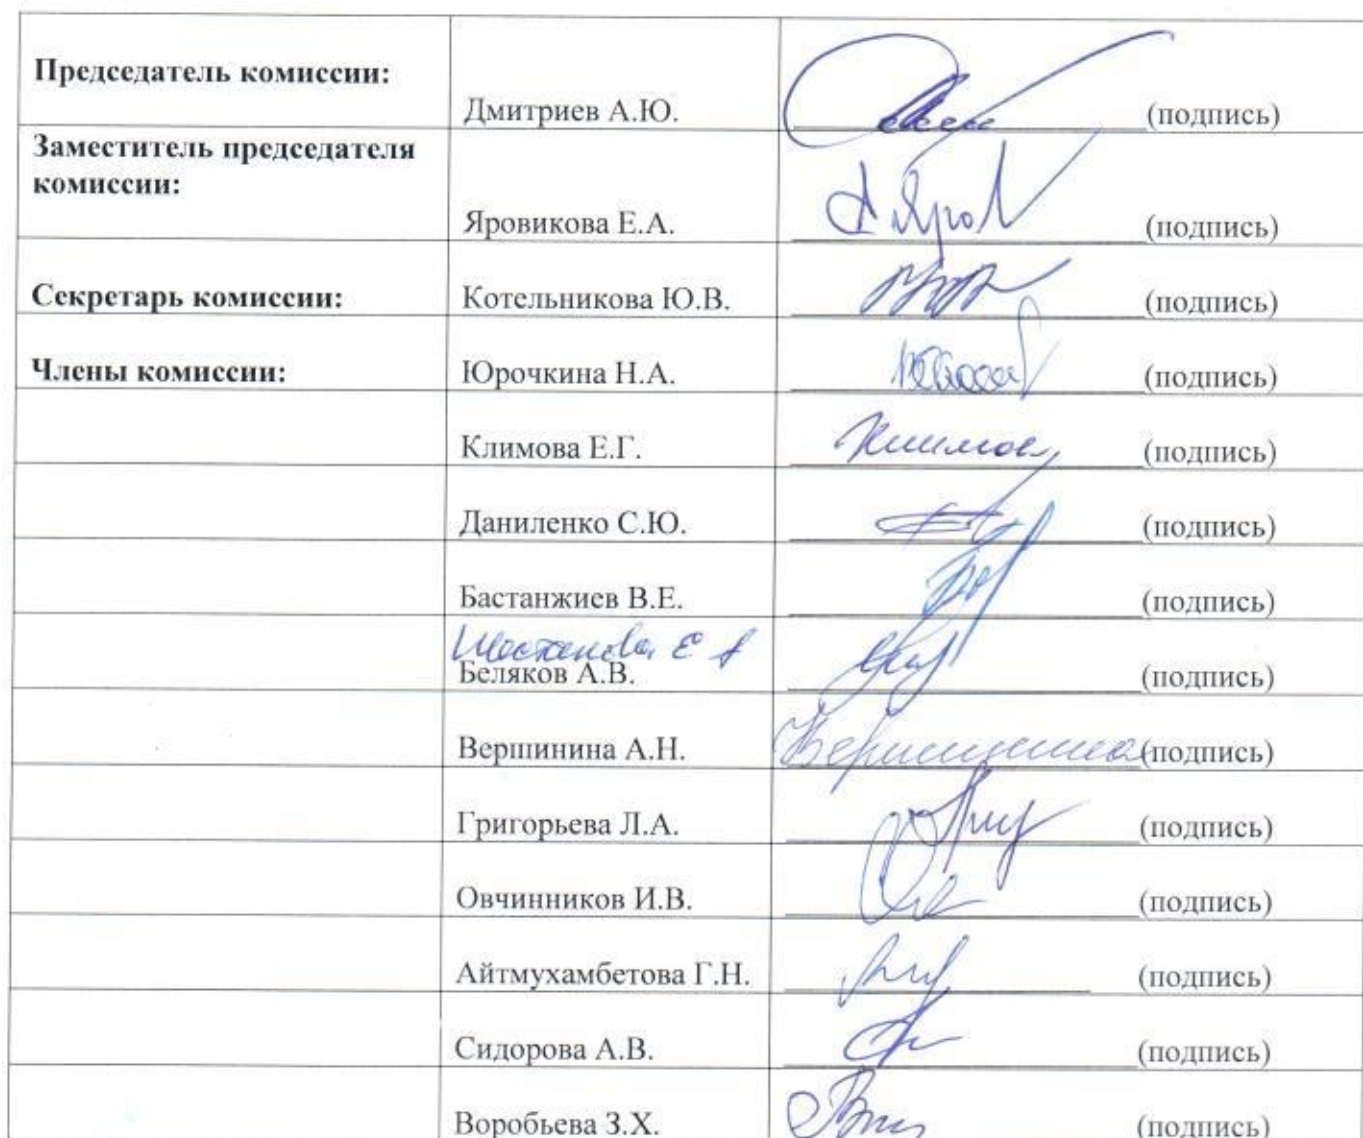 Председатель комиссии:
Дмитриев А.Ю. (подпись)
Заместитель председателя
комиссии:
Яровикова Е.А. (подпись)
Секретарь комиссии: Котельникова Ю.В. (подпись)
Члены комиссии: Юрочкина Н.А. (подпись)
Климова Е.Г. (подпись)
Даниленко С.Ю. (подпись)
Бастанжиев В.Е. (подпись)
Беляков А.В. (подпись)
Вершинина А.Н. Вершинина (подпись)
Григорьева Л.А. (подпись)
Овчинников И.В. (подпись)
Айтмухамбетова Г.Н. (подпись)
Сидорова А.В. (подпись)
Воробьева З.Х. (подпись)